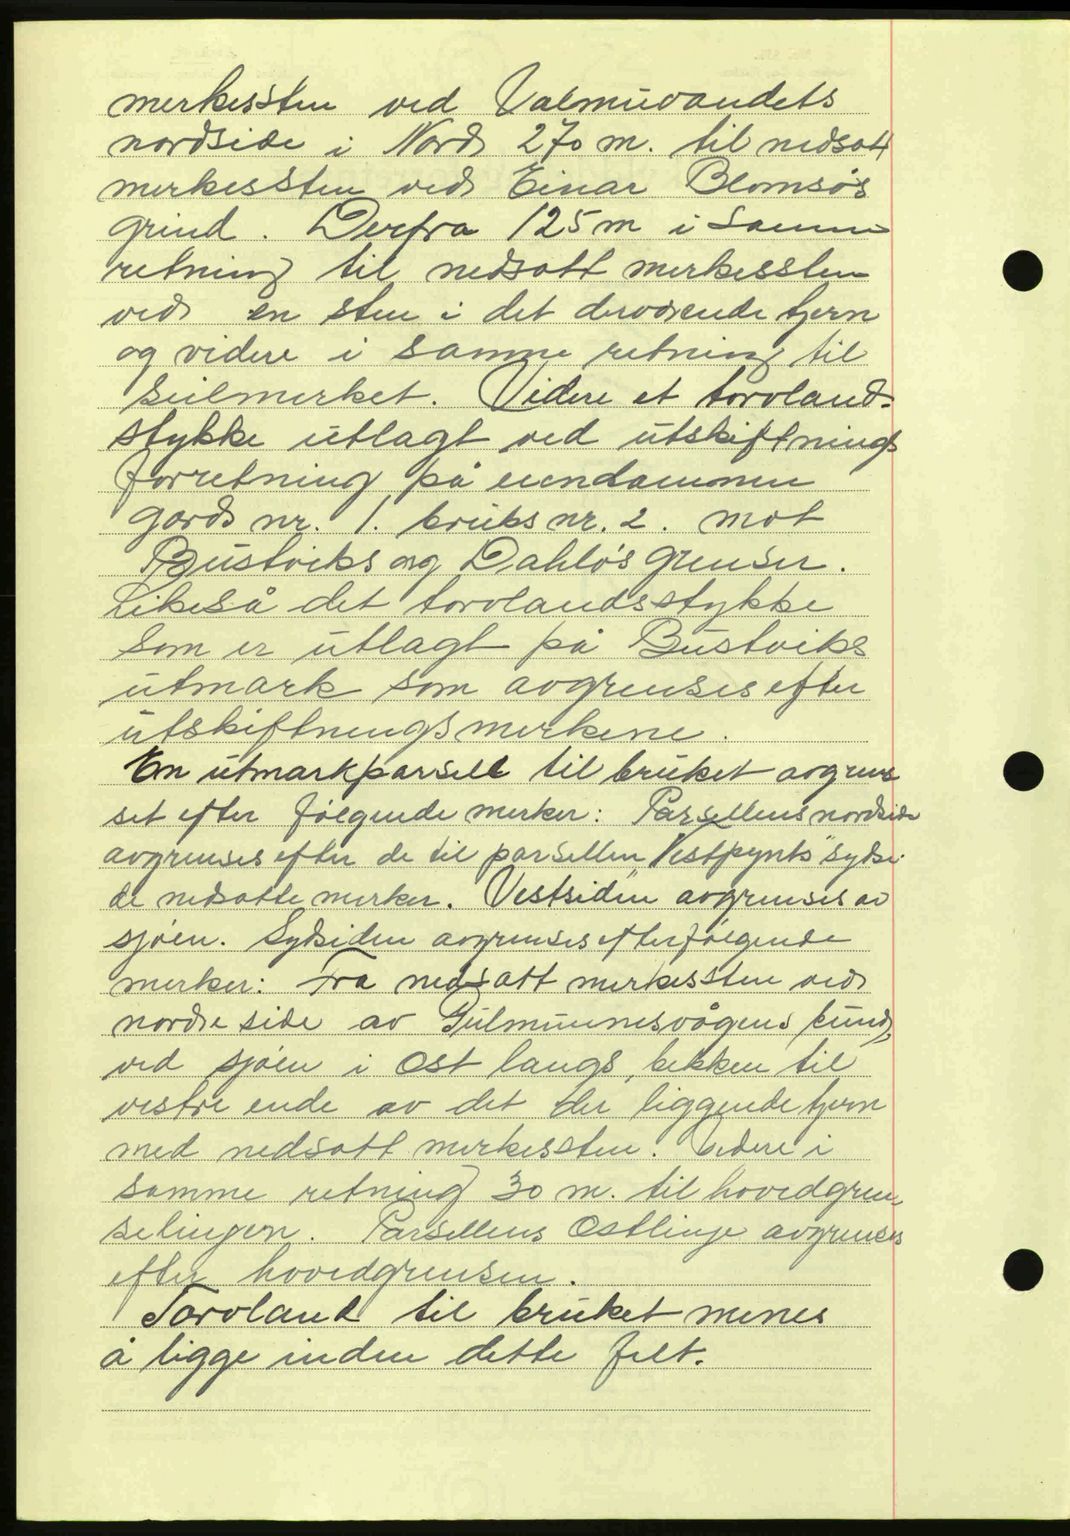 merkessten ved Valmuvandets
nordside i Nord 270 m. til nedsatt
merkessten ved Einar Blomsøs
grind. Derfra 125 m i samme
retning til nedsatt merkessten
ved en sten i det derværende tjern
og videre i samme retning til
seilmerket. Videre et torvland-
stykke utlagt ved utskiftnings
forretning på eiendommen
gards nr. 1. bruks nr. 2. mot
Bustviks og Dahløs grenser.
Likeså det torvlandsstykke
som er utlagt på Bustviks
utmark som avgrenses efter
utskiftningsmerkene.
En utmarkparsell til bruket avgren
set efter følgende merker: Parsellens nordside
avgrenses efter de til parsellen „Vestpynts" sydsi-
de nedsatte merker. Vestsiden avgrenses av
sjøen. Sydsiden avgrenses efter følgende
merker: Fra nedsatt merkessten ved
nordre side av Gulmunnesvågens bund,
ved sjøen i Øst langs bekken til
vestre ende av det der liggende tjern
med nedsatt merkessten. Videre i
samme retning 30 m. til hovedgren
selinjen. Parsellens Østlinje avgrenses
efter hovedgrensen.
Torvland til bruket menes
å ligge inden dette felt.